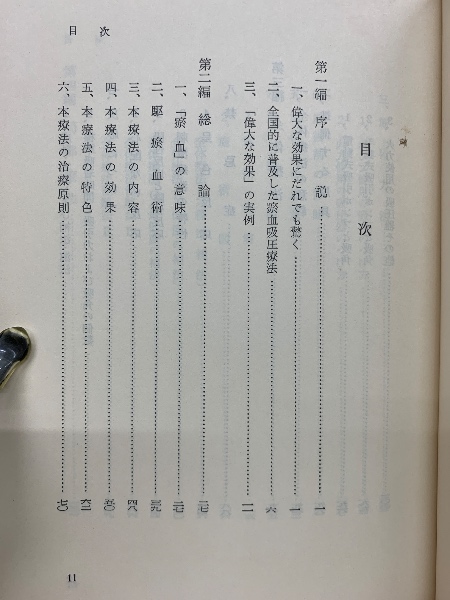 目次
目次
第一編 序説……一
一、偉大な効果にだれでも驚く……一
二、全国的に普及した瘀血吸圧療法……六
三、「偉大な効果」の実例……一一
第二編 総論……二七
一、「瘀血」の意味……二七
二、駆瘀血術……三九
三、本療法の内容……四八
四、本療法の効果……五〇
五、本療法の特色……六二
六、本療法の治療原則……七〇
11